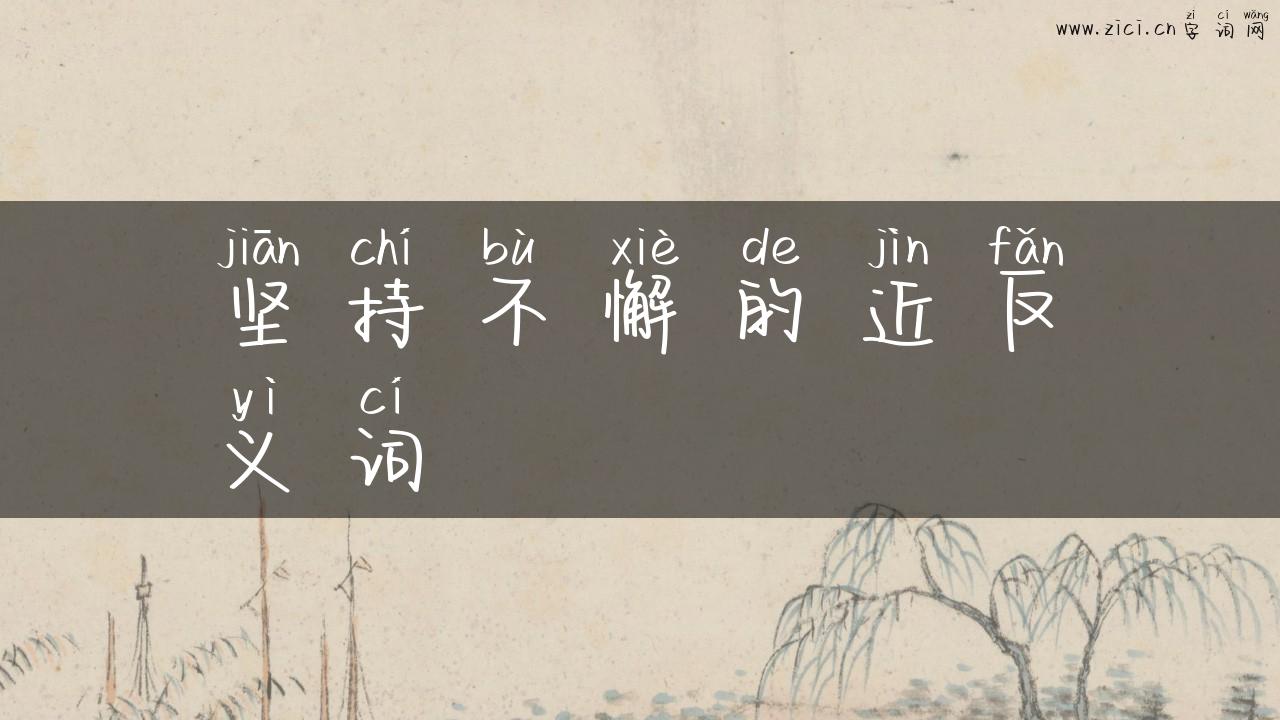 www.zici.cn zì cí wǎng
字词网
jiān chí bù xiè de jìn fǎn
坚持不懈的近反
yì cí
义词